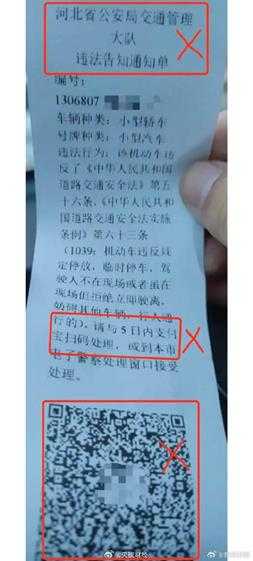 河北省公安局交通管理
大队
违法告知通知单
编号：
1306807
车辆种类：小型轿车
号牌种类：小型汽车
违法行为：该机动车违
反了《中华人民共和国
道路交通安全法》第五
十六条，《中华人民共和
国道路交通安全法实施
条例》第六十三条
（1039：机动车违反规
定停放，临时停车，驾
驶人不在现场或者虽在
现场但拒绝立即驶离，
妨碍其他车辆，行人通
行的），请与5日内支付
宝扫码处理，或到本市
电子警察处理窗口接受
处理。